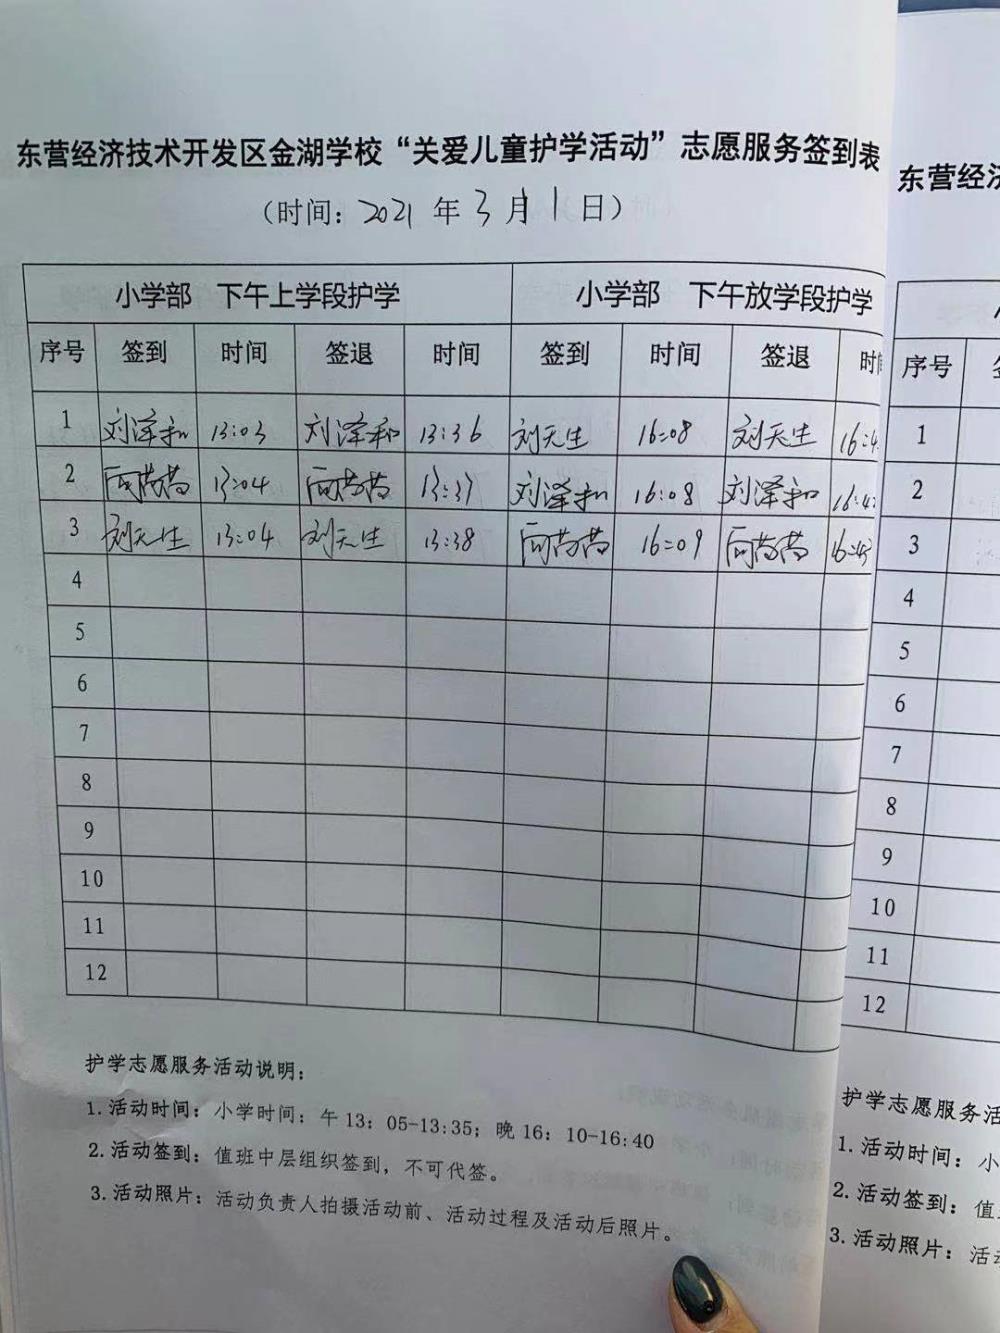 东营经济技术开发区金湖学校“关爱儿童护学活动”志愿服务签到表
（时间：2021 年 3 月 1 日）
小学部 下午上学段护学 小学部 下午放学段护学
序号 签到 时间 签退 时间 签到 时间 签退 时
1 刘泽和 13:03 刘泽和 13:36 刘天生 16:08 刘天生 16:4
2 13:04 13:37 刘泽和 16:08 刘泽和 16:42
3 刘天生 13:04 刘天生 13:38 16:09 16:43
4
5
6
7
8
9
10
11
12
护学志愿服务活动说明：
1.活动时间：小学时间：午 13：05-13:35；晚 16：10-16:40
2.活动签到：值班中层组织签到，不可代签。
3.活动照片：活动负责人拍摄活动前、活动过程及活动后照片。
东营经济
序号
1
2
3
4
5
6
7
8
9
10
11
12
护学志愿服务活
1.活动时间：小
2.活动签到：值
3.活动照片：活